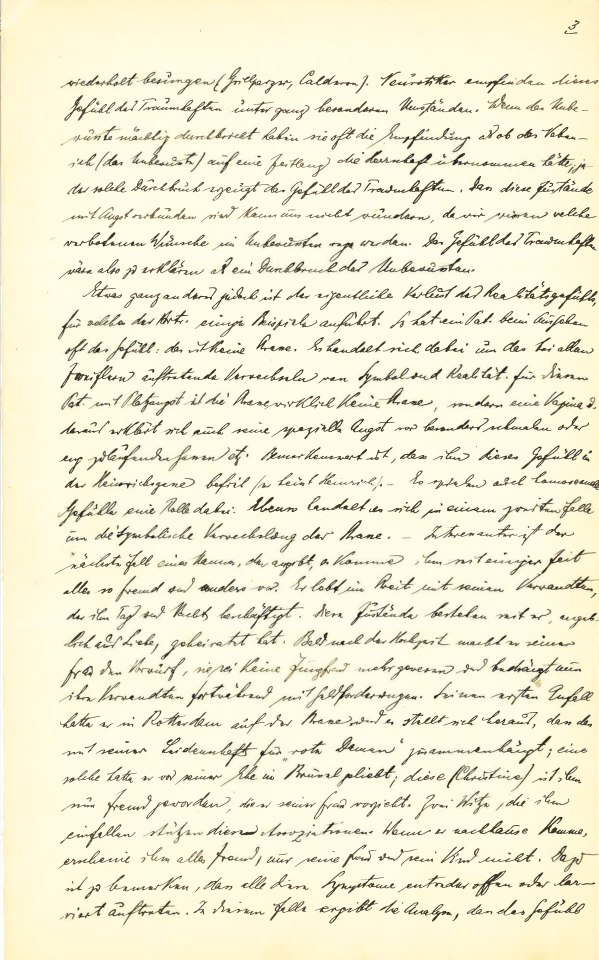 3
wiederholt besungen (Grillparzer, Calderon). Neurotiker empfinden dieses
Gefühl des Traumhaften unter ganz besonderen Umständen. Wenn das Unbe-
wusste mächtig durchbricht haben sie oft die Empfindung als ob das Neben-
ich (das Unbewusste) auf eine Zeitlang die Herrschaft übernommen hätte, je-
der solche Durchbruch erzeugt das Gefühl des Traumhaften. Dass diese Zustände
mit Angst verbunden sind kann uns nicht wundern, da wir wissen welche
verbotenen Wünsche im Unbewussten rege werden. Das Gefühl des Traumhaften
wäre also zu erklären als ein Durchbruch des Unbewussten.
Etwas ganz anders jedoch ist der eigentliche Verlust des Realitätsgefühls,
für welchen der Vortr. einige Beispiele anführt. So hat ein Pat. beim Ausgehen
oft das Gefühl: das ist keine Strasse. Es handelt sich dabei um das bei allen
Zweiflern auftretende Verwechseln von Symbol und Realität. Für diesen
Pat. mit Platzangst ist die Strasse wirklich keine Strasse, sondern eine Vagina u.
daraus erklärt sich auch seine spezielle Angst vor besonders schmalen oder
eng zulaufenden Gassen etz. Bemerkenswert ist, dass ihn dieses Gefühl in
der Heinrichsgasse befiel (er heisst Heinrich). – Es spielen auch homosexuelle
Gefühle eine Rolle dabei. Ebenso handelt es sich in einem zweiten Falle
um die symbolische Verwechslung der Strasse. – Interessanter ist der
nächste Fall eines Mannes, der angibt, es komme ihm seit einiger Zeit
alles so fremd und anders vor. Er lebt im Streit mit seinen Verwandten,
der ihn Tag und Nacht beschäftigt. Diese Zustände bestehen seit er, angeb-
lich aus Liebe, geheiratet hat. Bald nach der Hochzeit macht er seiner
Frau den Vorwurf, sie sei keine Jungfrau mehr gewesen und bedrängt nun
ihre Verwandten fortwährend mit Geldforderungen. Seinen ersten Anfall
hatte er in Rotterdam auf der Strasse und es stellt sich heraus, dass das
mit seiner Leidenschaft für "rote Damen" zusammenhängt; eine
solche hatte er vor seiner Ehe in Brüssel geliebt; diese (Christine) ist ihm
nun fremd geworden, die er seiner Frau vorzieht. Zwei Witze, die ihm
einfallen stützen diese Assoziationen. Wenn er nachhause komme,
erscheine ihm alles fremd, nur seine Frau und sein Kind nicht. Dazu
ist zu bemerken, dass alle diese Symptome entweder offen oder lar-
viert auftreten. In diesem Falle ergibt die Analyse, dass das Gefühl